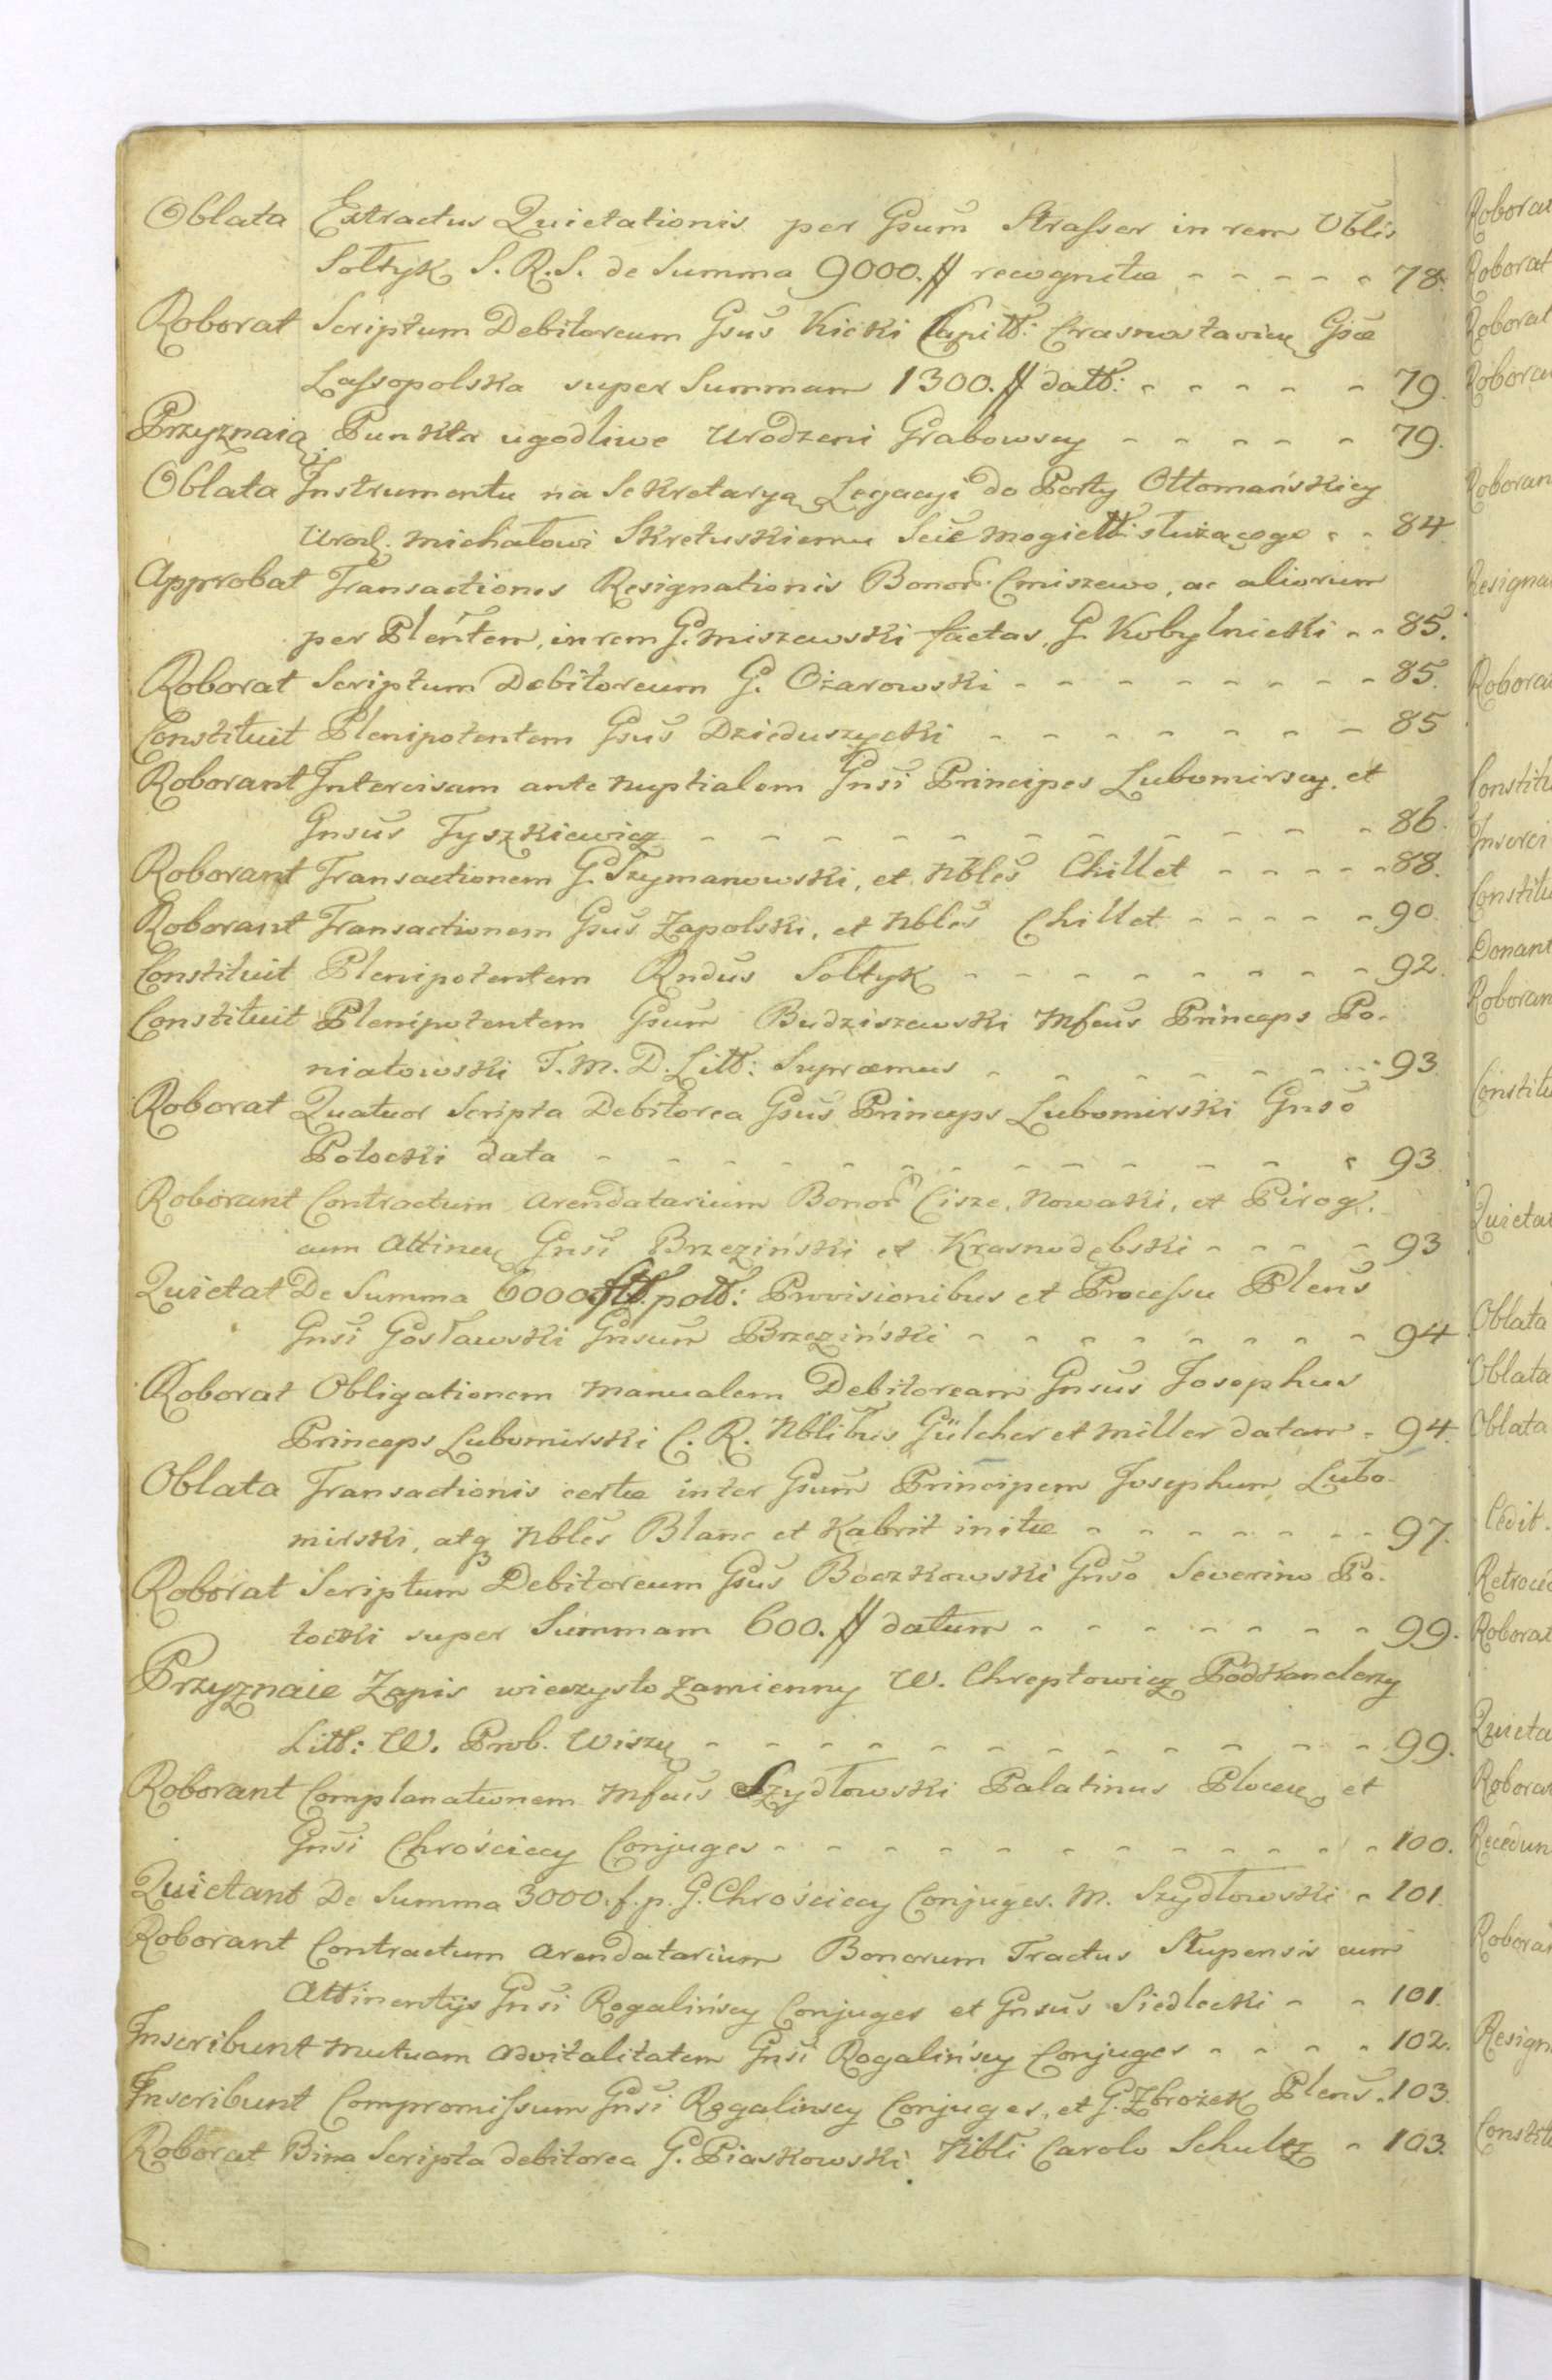 Oblata Extractus Quietationis per Gsum Strasser in rem Vblis
Soltyk S. R. S. de Summa 9000. ff recognitæ - - - - - 78.
Roborat Scriptum Debitoreum Gsus Kicki Capitt: Crasnostavien Gsæ
Lassopolska super Summam 1300. ff datt: - - - - - 79.
Przyznaią Punkta ugodliwe Urodzeni Grabowscy - - - - - 79.
Oblata Instrumentu na Sekretaryą Legacyi do Porty Ottomańskiey
Urodz. Michałowi Skretuskiemu służącego - - 84
Approbat Transactiones Resignationis Bonor. Cmiszewo, ac aliorum
per Plentem, in rem G. Miszewski factas, G. Kobylnicki - - 85.
Roborat Scriptum Debitoreum G. Ożarowski - - - - - - - - 85.
Constituit Plenipotentem Gsus Dzieduszycki - - - - - - - 85
Roborant Intercisam ante nuptialem Gnsi Principes Lubomirscy, et
Gnsus Tyszkiewicz - - - - - - - - - - - - 86.
Roborant Transactionem G. Szymanowski, et Nbles Chillet - - - - - 88.
Roborant Transactionem Gsus Zapolski, et Nbles Chillet - - - - - 90.
Constituit Plenipotentem Rndus Sołtyk - - - - - - - - 92.
Constituit Plenipotentem Gsum Budziszewski Mfcus Princeps Po-
niatowski T. M. D. Litt: Supræmus - - - - - - - 93.
Roborat Quatuor Scripta Debitorea Gsus Princeps Lubomirski Gnso
Potocki data - - - - - - - - - - - - - 93.
Roborant Contractum Arendatarium Bonor Cisze, Nowaki, et Pirog.
cum Attinen Gnsi Brzeziński et Krasnodębski - - - - 93
Quietat De Summa 6000 flt. poll: Provisionibus et Processu Plens
Gnsi Gosławski Gnsum Brzeziński - - - - - - - - 94
Roborat Obligationem manualem Debitoream Gnsus Josephus
Princeps Lubomirski C. R. Nblibus Gülcher et Miller datam - 94.
Oblata Transactionis certæ inter Gsum Principem Josephum Lubo-
mirski, atq Nbles Blanc et Kabrit initæ - - - - - - - 97.
Roborat Scriptum Debitoreum Gsus Boczkowski Gnso Severino Po-
tocki super Summam 600. ff datum - - - - - - - 99.
Przyznaie Zapis wieczysto zamienny W. Chreptowicz Podkanclerzy
Litt: W. Prob. Wiszn - - - - - - - - - - - - 99.
Roborant Complanationem Mfcus Szydłowski Palatinus Plocen et
Gnsi Chrościccy Conjuges - - - - - - - - - - - 100.
Quietant De Summa 3000. f. p. G. Chrościccy Conjuges. M. Szydłowski - 101.
Roborant Contractum Arendatarium Bonorum Tractus Stupensis cum
Attinentijs Gnsi Rogalińscy Conjuges et Gnsus Siedlecki - - 101.
Inscribunt mutuam advitalitatem Gnsi Rogalińscy Conjuges - - - - 102.
Inscribunt Compromissum Gnsi Rogalinscy Conjuges, et G. Zbrożek Plens. 103.
Roborat Bina Scripta debitorea G. Piaskowski Nbli Carolo Schultz - 103.
Roborat
Roborat
Roborat
Roborat
Roboran
Resigna
Roborat
Constitu
Inscri
Constitu
Donant
Roboran
Constitu
Quietat
Oblata
Oblata
Oblata
Cedit.
Retroced
Roborat
Quieta
Roboran
Recedun
Roboran
Resign
Constitu